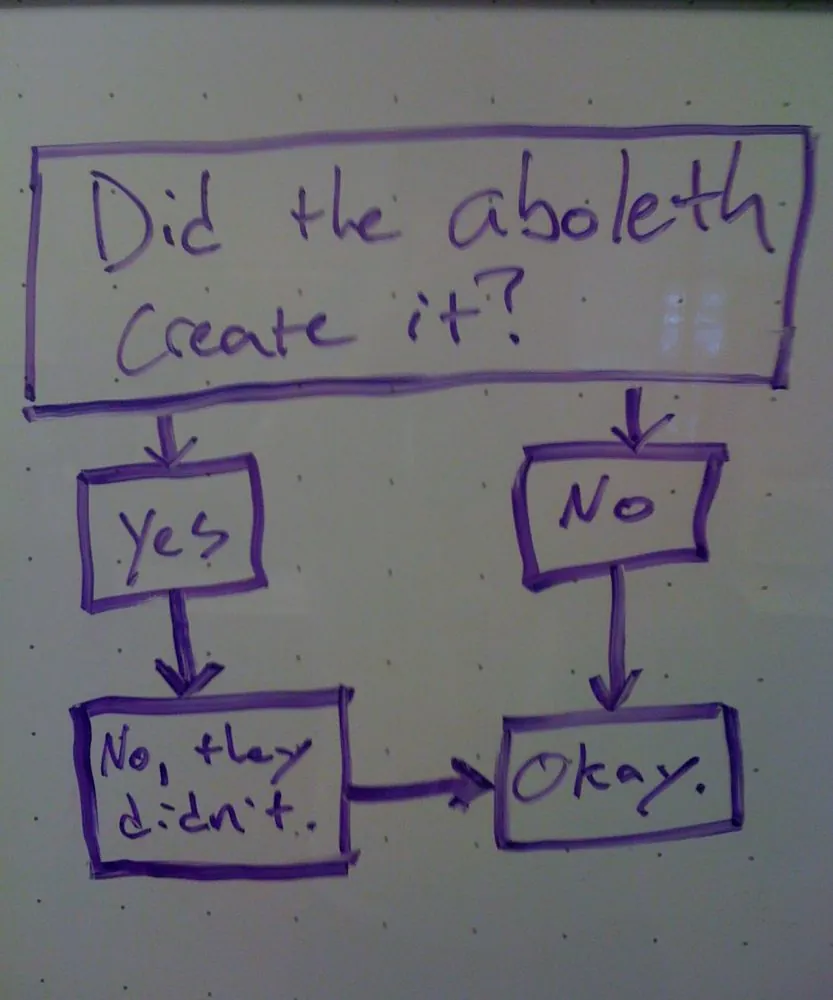 Did the aboleth
create it?
Yes
No
No, they
didn't.
Okay.